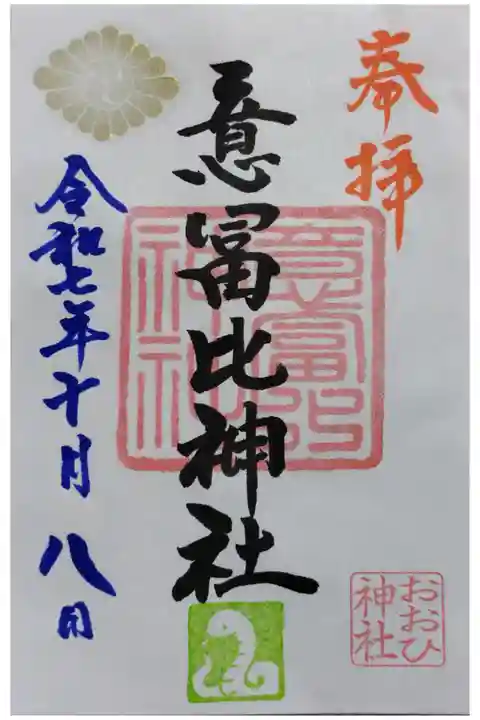 奉拝
意冨比神社
意富比
神社
令和七年十月八日
おおひ
神社